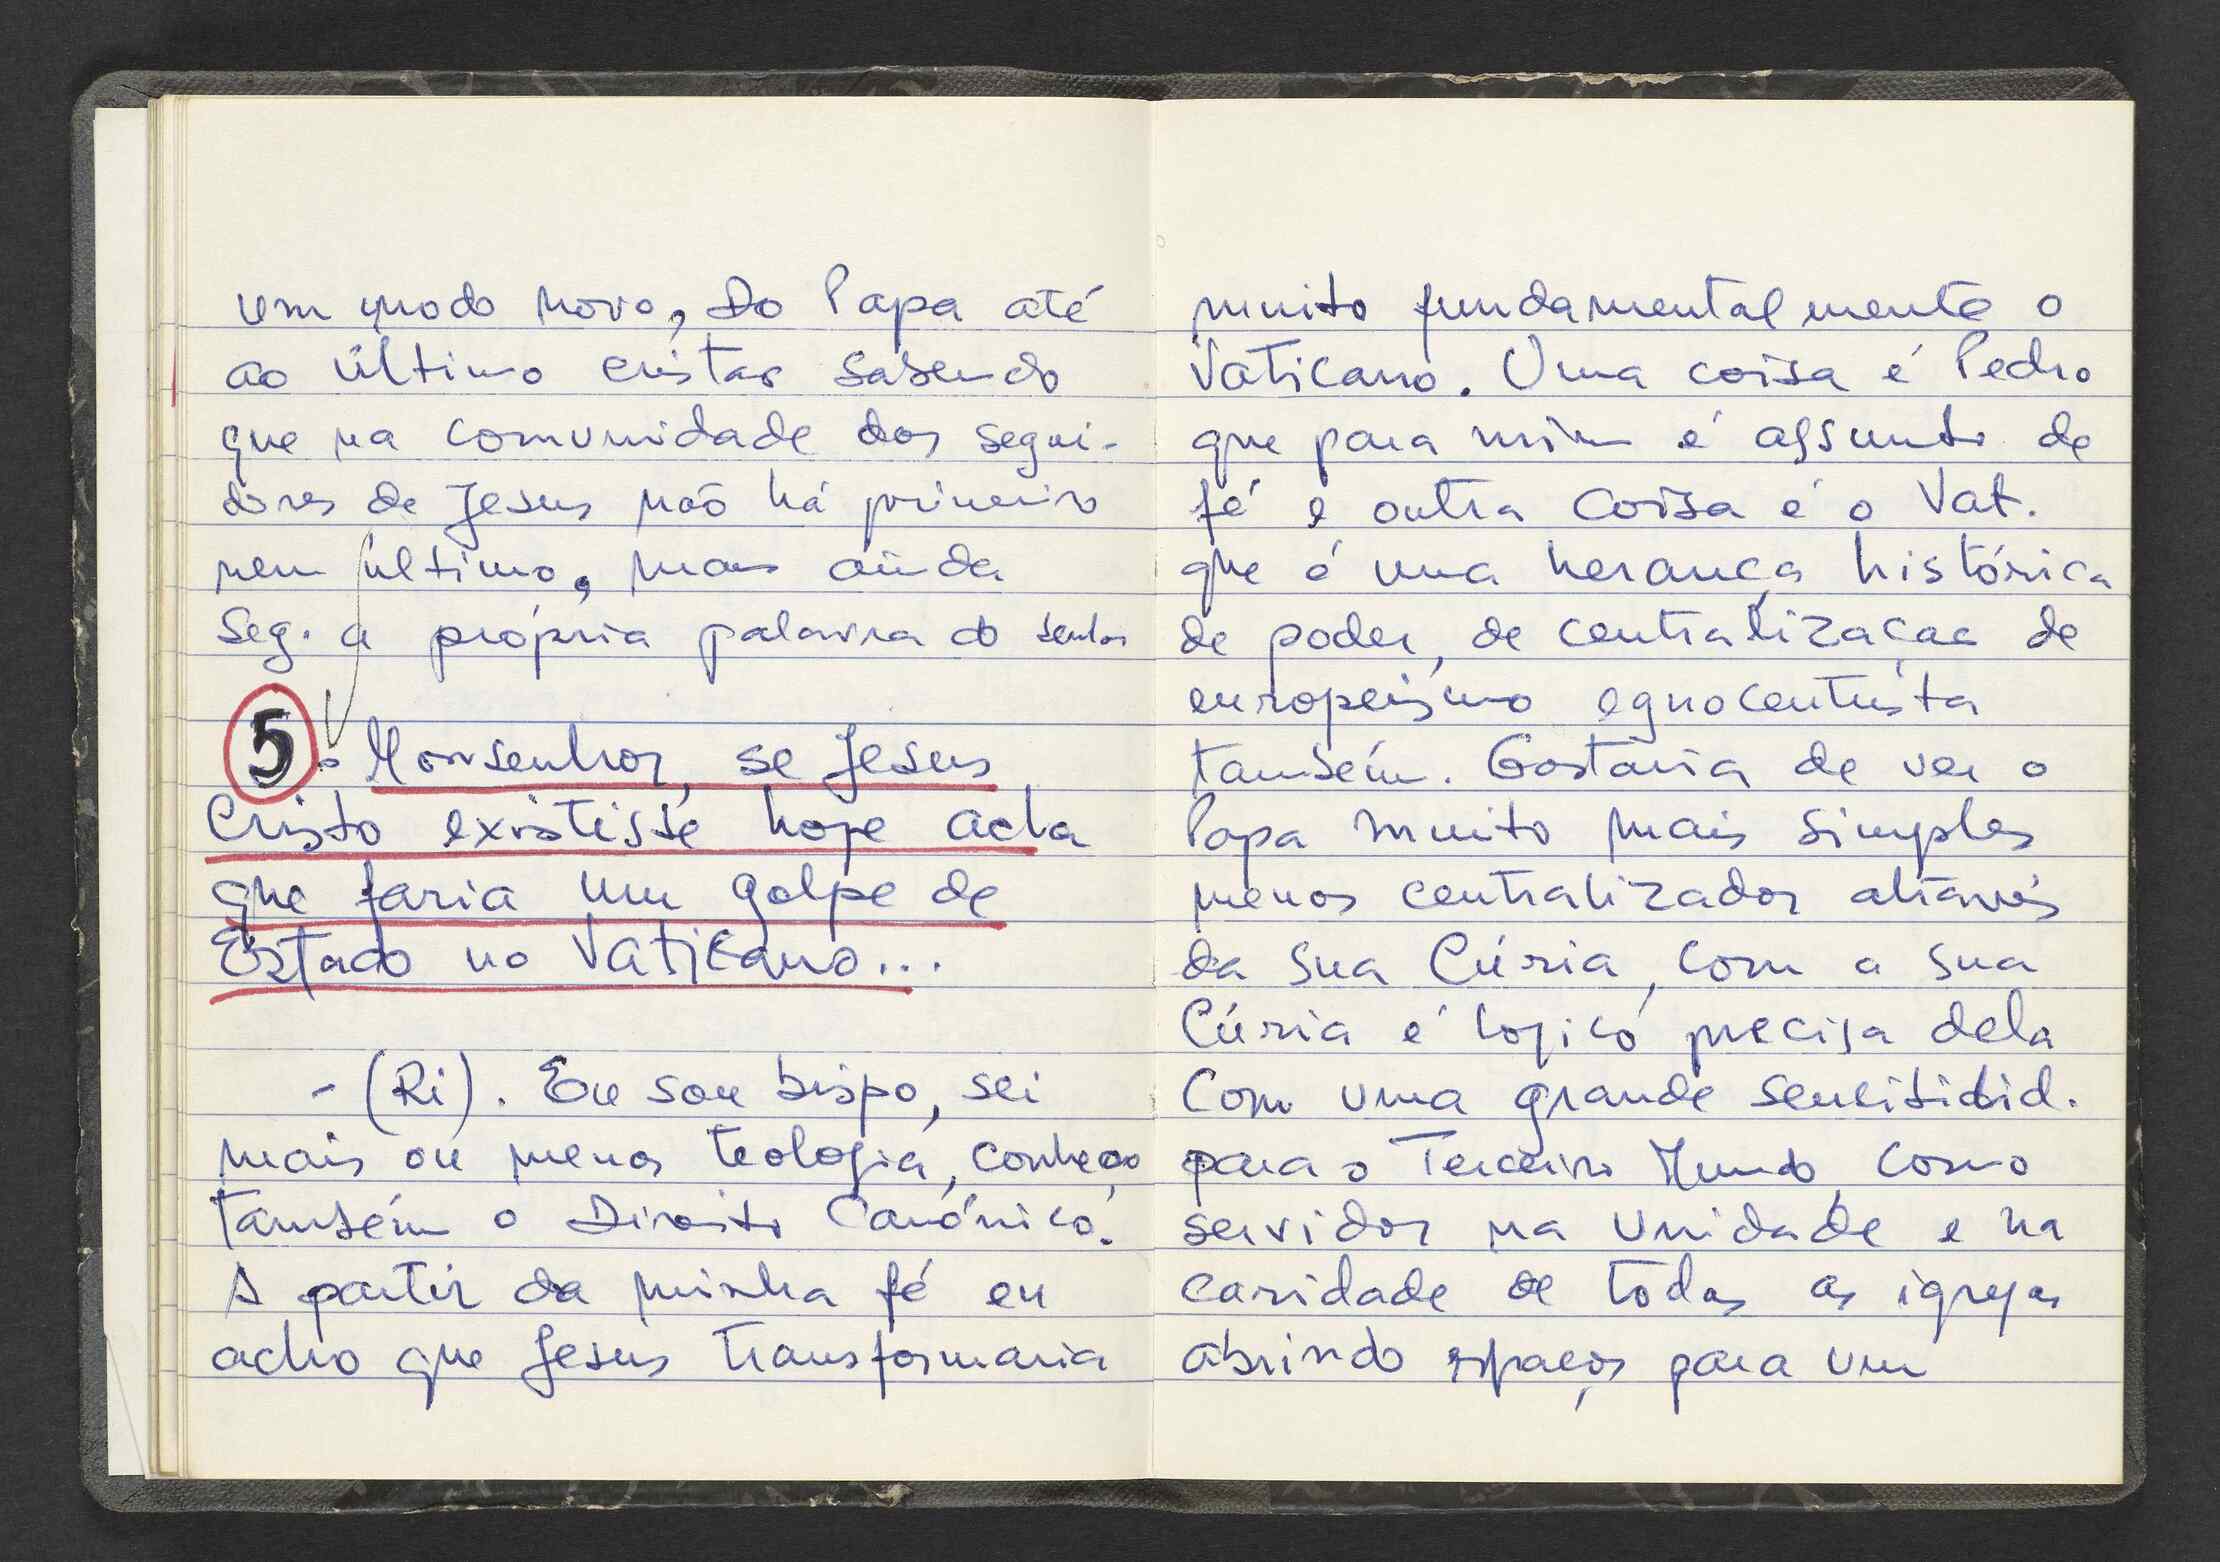 um modo novo, Do Papa até
ao último cristão sabendo
que na comunidade dos segui-
dores de Jesus não há primeiro
nem último, mas ainda
seg. a própria palavra do senhor
5. Monsenhor, se Jesus
Cristo existisse hoje acha
que faria um golpe de
Estado no Vaticano...
- (Ri). Eu sou bispo, sei
mais ou menos teologia, conheço
também o Direito Canónico.
A partir da minha fé eu
acho que Jesus transformaria
muito fundamentalmente o
Vaticano. Uma coisa é Pedro
que para mim é assunto de
fé e outra coisa é o Vat.
que é uma herança histórica
de poder, de centralização de
europeismo egnocentrista
também. Gostaria de ver o
Papa muito mais simples
menos centralizador através
da sua Cúria, com a sua
Cúria é lógico precisa dela
Com uma grande sensitibid.
para o Terceiro Mundo, como
servidor na unidade e na
caridade de todas as igrejas
abrindo espaços para um